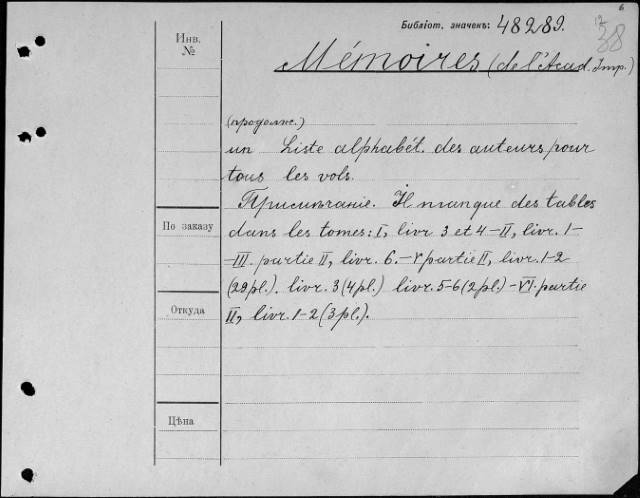 6
Библіот. значекъ: 48289.
12
38
Инв.
№
Mémoires (de l'Acad. Imp.)
(продолж.)
un Liste alphabét. des auteurs pour
tous les vols.
Примѣчаніе. Il manque des tables
dans les tomes: I, livr 3 et 4 – II, livr. 1 –
По заказу
– III. partie II, livr. 6. – V partie II, livr. 1-2
(29 pl.). livr. 3 (4 pl.) livr. 5-6 (2 pl.) – VI. partie
Откуда
II, livr. 1-2 (3 pl.).
Цѣна